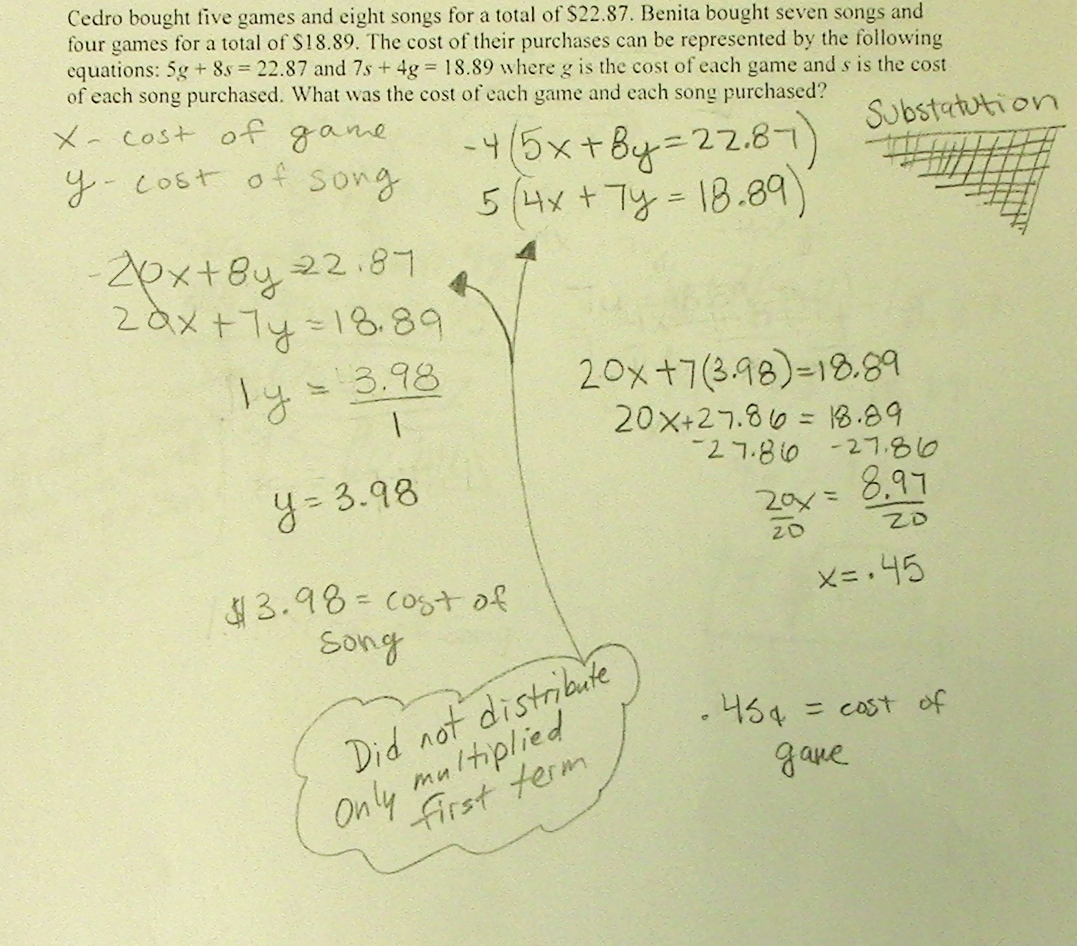 Cedro bought five games and eight songs for a total of $22.87. Benita bought seven songs and
four games for a total of $18.89. The cost of their purchases can be represented by the following
equations: 5g + 8s = 22.87 and 7s + 4g = 18.89 where g is the cost of each game and s is the cost
of each song purchased. What was the cost of each game and each song purchased?
Substatution
x - cost of game
y - cost of song
-4(5x+8y=22.87)
5(4x+7y=18.89)
-20x+8y=22.87
20x+7y=18.89
1y = 3.98
1
y=3.98
$3.98 = cost of
song
20x+7(3.98)=18.89
20x+27.86 = 18.89
-27.86 -27.86
20x = 8.97
20 20
x=.45
.45¢ = cost of
game
Did not distribute
only multiplied
first term